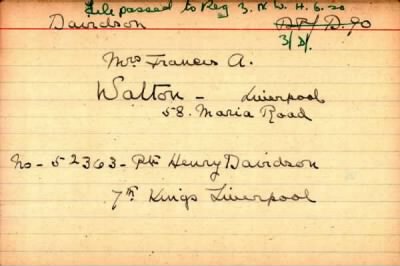 File passed to Reg 3. N.W.H. 6.20
Davidson D.90
3/D/.
Mrs Frances A.
Walton - Liverpool
58. Maria Road
No - 52363 - Pte Henry Davidson
7th Kings Liverpool